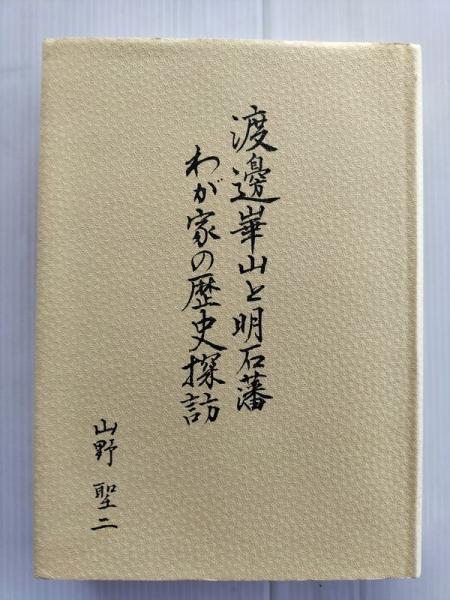 渡邊崋山と明石藩
わが家の歴史探訪
山野聖二